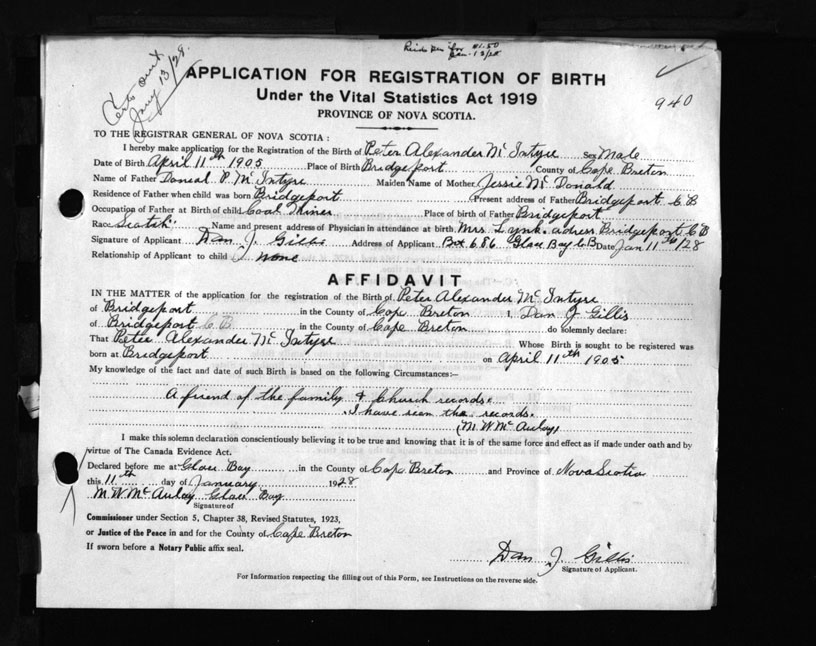 Certs out
Jany 13/28.
for $1.50
13/28
940
APPLICATION FOR REGISTRATION OF BIRTH
Under the Vital Statistics Act 1919
PROVINCE OF NOVA SCOTIA.
TO THE REGISTRAR GENERAL OF NOVA SCOTIA:
I hereby make application for the Registration of the Birth of Peter Alexander Mc Intyre Sex Male
Date of Birth April 11th 1905 Place of Birth Bridgeport County of Cape Breton
Name of Father Doneal P. Mc Intyre Maiden Name of Mother Jessie Mc Donald
Residence of Father when child was born Bridgeport Present address of Father Bridgeport C B
Occupation of Father at Birth of child Coal Miner Place of birth of Father Bridgeport
Race Scotch Name and present address of Physician in attendance at birth Mrs. Lynk. adress, Bridgeport C B
Signature of Applicant Dan J. Gillis Address of Applicant Box 686 Glace Bay C B Date Jan 11th/28
Relationship of Applicant to child None
AFFIDAVIT
IN THE MATTER of the application for the registration of the Birth of Peter Alexander Mc Intyre
of Bridgeport in the County of Cape Breton I, Dan J Gillis
of Bridgeport C B in the County of Cape Breton do solemnly declare:
That Peter Alexander Mc Intyre Whose Birth is sought to be registered was
born at Bridgeport on April 11th 1905
My knowledge of the fact and date of such Birth is based on the following Circumstances:—
A friend of the family & Church records.
I have seen the records.
(M. W. Mc Aulay)
I make this solemn declaration conscientiously believing it to be true and knowing that it is of the same force and effect as if made under oath and by
virtue of The Canada Evidence Act.
Declared before me at Glace Bay in the County of Cape Breton and Province of Nova Scotia
this 11th day of January 1928
M. W. Mc Aulay Glace Bay
Signature of
Commissioner under Section 5, Chapter 38, Revised Statutes, 1923,
or Justice of the Peace in and for the County of Cape Breton
If sworn before a Notary Public affix seal.
Dan J. Gillis
Signature of Applicant.
For Information respecting the filling out of this Form, see Instructions on the reverse side.